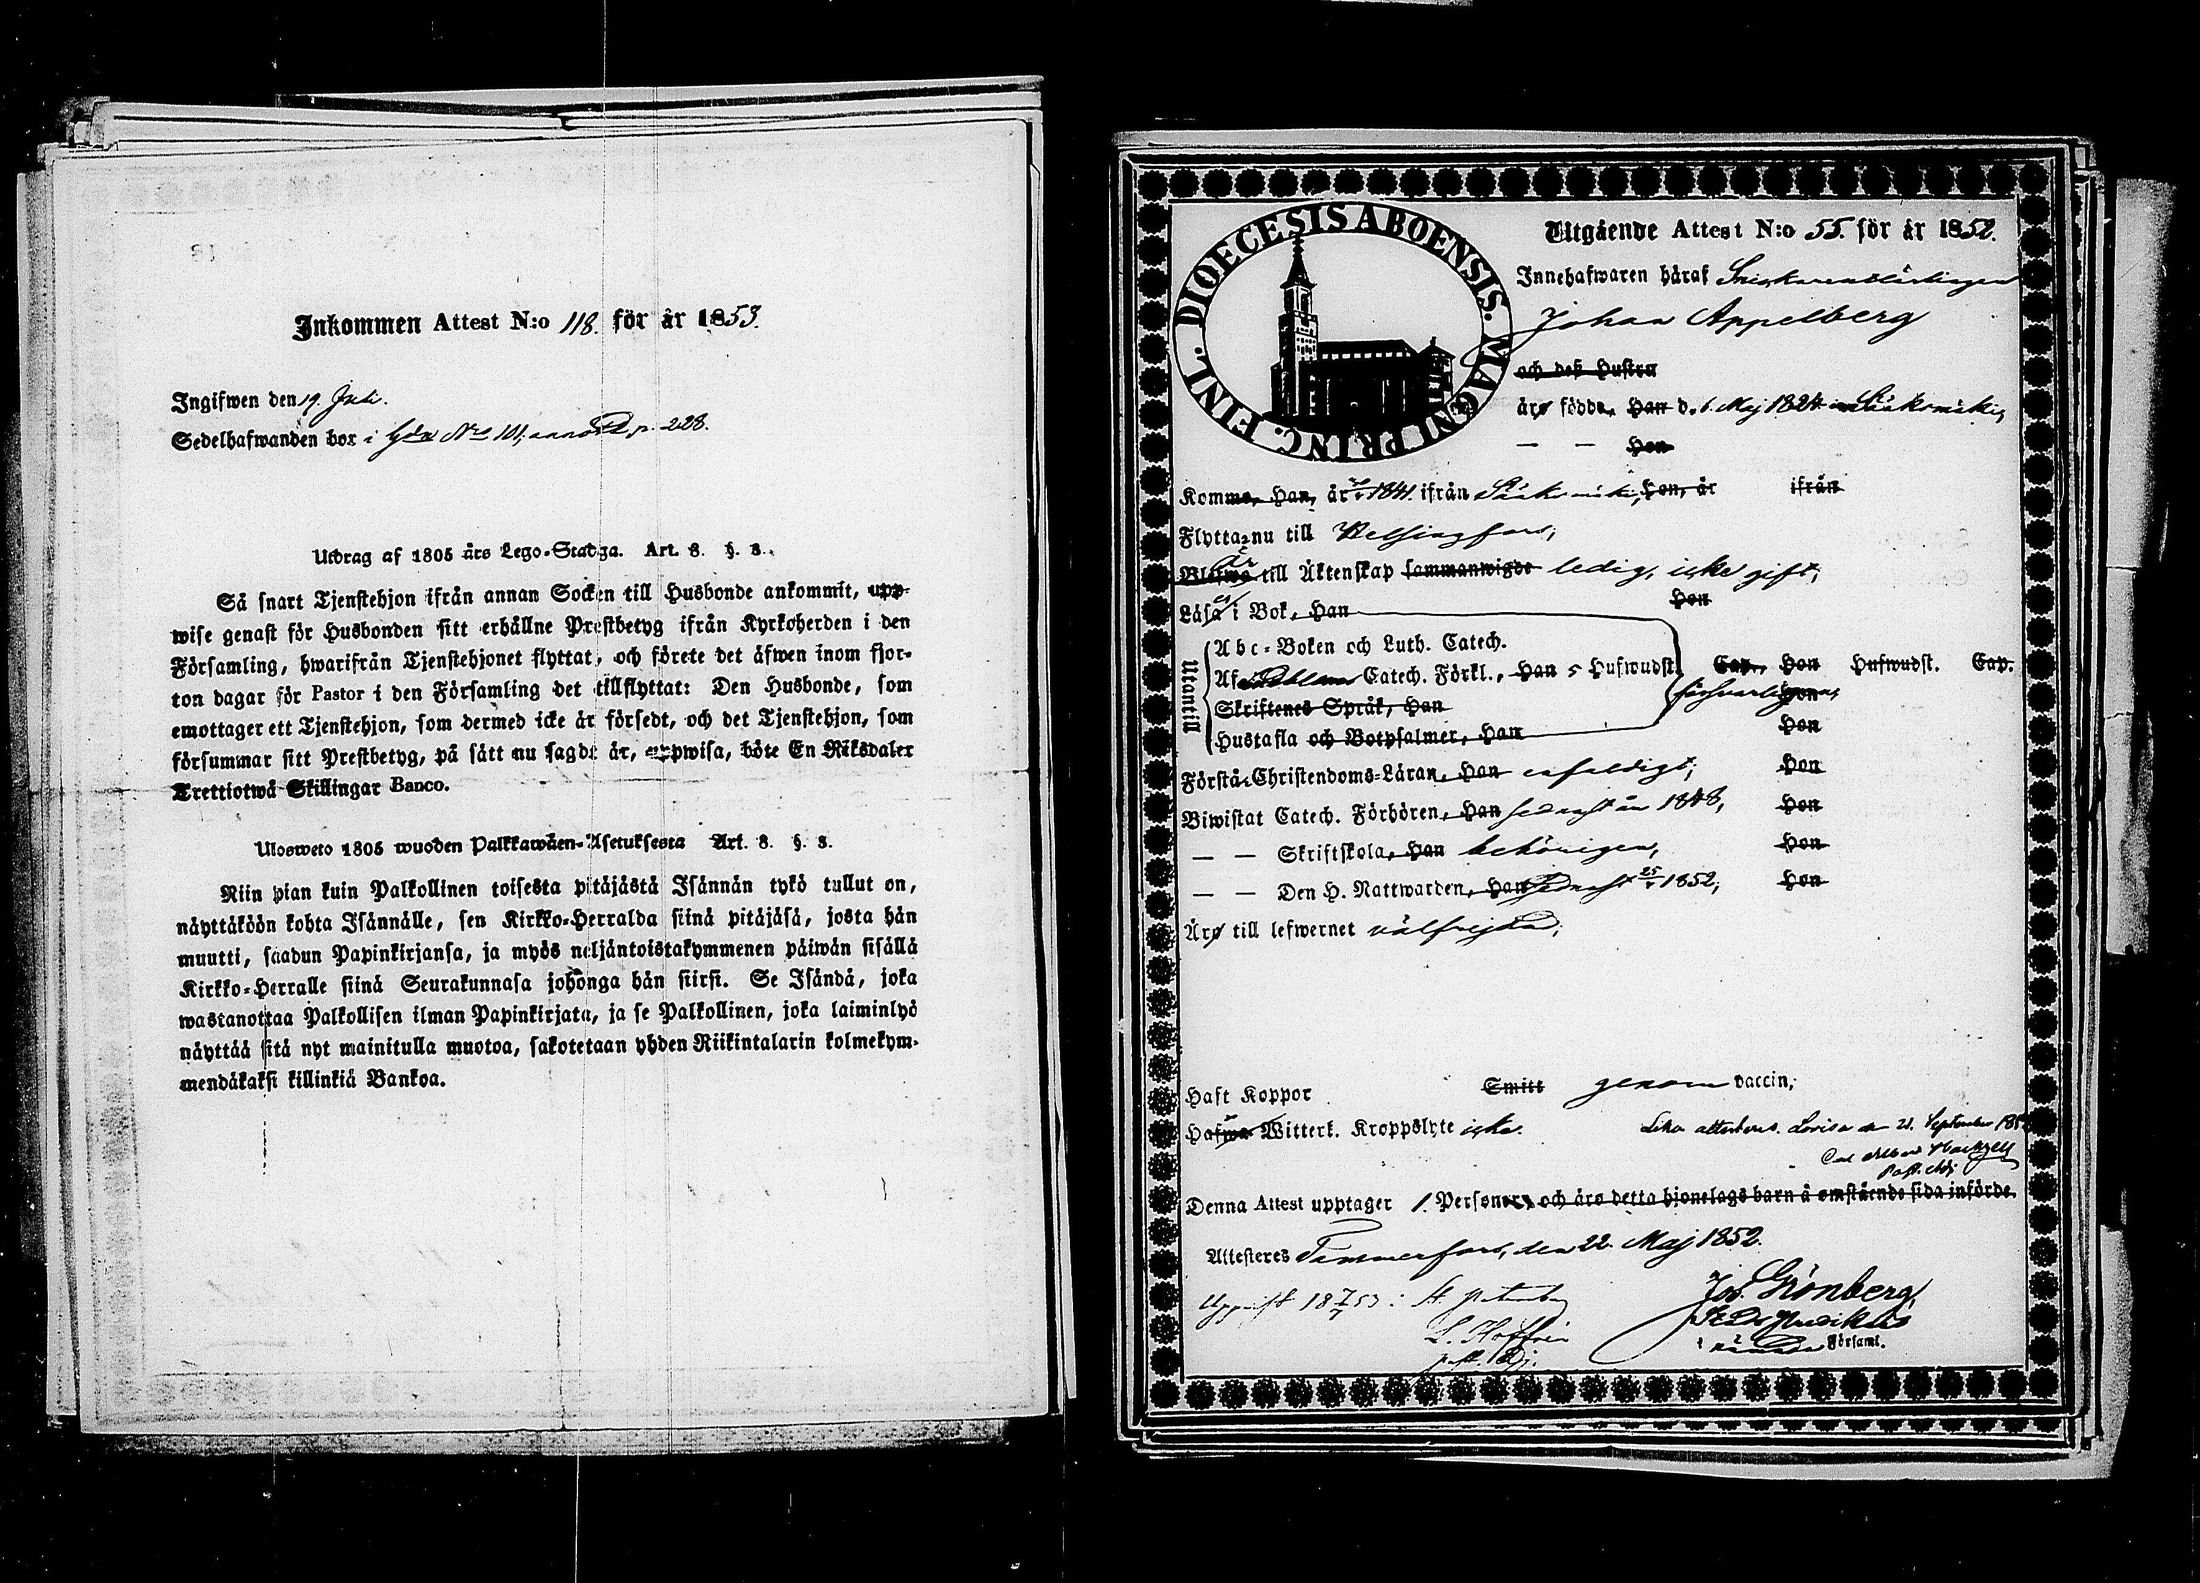 Inkommen Attest N:o 118. för år 1853.
Ingifwen den 19. Juli.
Sedelhafwanden bor i Gård No 101, p. 228.
Utdrag af 1805 års Lego-Stadga. Art. 8. §. 3.
Så snart Tjenstehjon ifrån annan Socken till Husbonde ankommit, upp-
wise genast för Husbonden sitt erhållne Prestbetyg ifrån Kyrkoherden i den
Församling, hwarifrån Tjenstehjonet flyttat, och förete det äfwen inom fjor-
ton dagar för Pastor i den Församling det tillflyttat: Den Husbonde, som
emottager ett Tjenstehjon, som dermed icke är försedt, och det Tjenstehjon, som
försummar sitt Prestbetyg, på sätt nu sagdt är, uppwisa, böte En Riksdaler
Trettiotwå Skillingar Banco.
Ulosweto 1805 wuoden Palkkawäen-Asetuksesta Art. 8. §. 3.
Niin pian kuin Palkollinen toisesta pitäjästä Isännän tykö tullut on,
näyttäköön kohta Isännälle, sen Kirkko-Herralda siinä pitäjäsä, josta hän
muutti, saadun Papinkirjansa, ja myös neljäntoistakymmenen päiwän sisällä
Kirkko-Herralle siinä Seurakunnasa johonga hän siirsi. Se Isändä, joka
wastanottaa Palkollisen ilman Papinkirjata, ja se Palkollinen, joka laiminlyö
näyttää sitä nyt mainitulla muotoa, sakotetaan yhden Riikintalarin kolmekym-
mendäkaksi killinkiä Bankoa.
DIOECESIS ABOENSIS. MAGNI PRINC. FINL.
Utgående Attest N:o 55. för år 1852.
Innehafwaren häraf Snickarelärlingen
Johan Appelberg
och deß Hustru
äro födde, Han d. 6. Maj 1824 i Sääksmäki,
— — Hon
Komme, Han, år 1841. ifrån Sääksmäki, Hon, år ifrån
Flytta nu till Helsingfors,
Blefwo är till Äktenskap sammanwigde ledig, icke gift,
Läsa i Bok, Han Hon
Utantill
Abc-Boken och Luth. Catech.
Af Catech. Förkl., Han 5 Hufwudst. Cap., Hon Hufwudst. Cap.
Skriftenes Språk, Han försvarligen, Hon
Hustafla och Botpsalmer, Han Hon
Förstå Christendoms-Läran, Han enfaldigt, Hon
Biwistat Catech. Förhören, Han sednast år 1848, Hon
— — Skriftskola, Han behörigen, Hon
— — Den H. Nattwarden, Han sednast 1852, Hon
Äro till lefwernet välfrejdad,
Haft Koppor Smitt genom vaccin,
Hafwa Witterl. Kroppslyte icke.
attesteras. Lovisa den 21. September
Past. Adj.
Denna Attest upptager 1. Personer, och äro detta hjonelags barn å omstående sida införde.
Attesteres Tammerfors, den 22. Maj 1852.
Uppvist 18 7/7 53: St. Petersburg
past. Adj.
Jos. Grönberg,
i nämnda Församl.